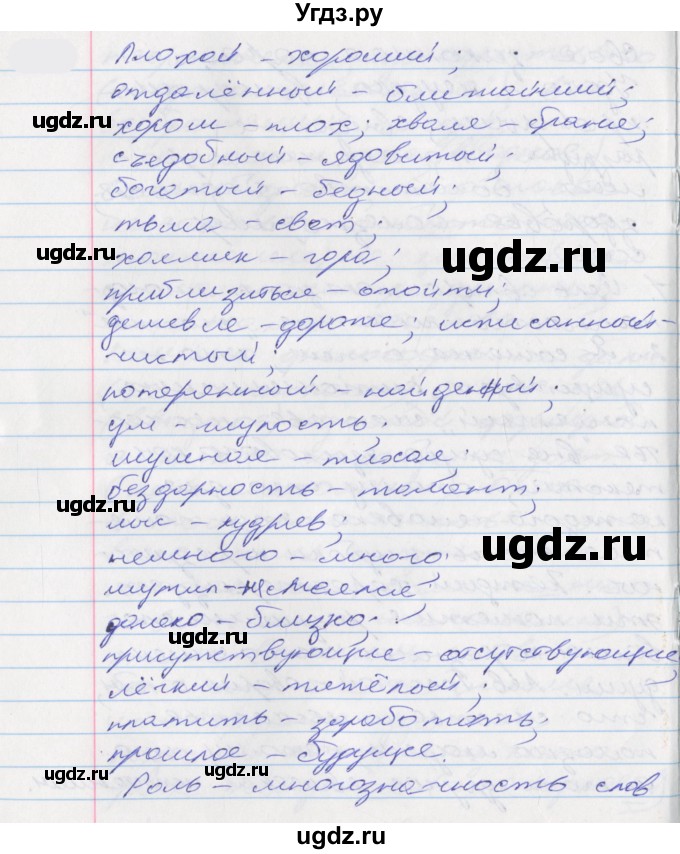 Угдз.ру
Плохой – хороший;
отдалённый – ближайший;
хорош – плох; хваля – браня;
съедобный – ядовитый;
богатый – бедный;
тьма – свет;
холмик – гора;
приблизиться – отойти;
дешевле – дороже; исписанный –
чистый;
потерянный – найденный;
ум – глупость;
шумная – тихая;
бездарность – талант;
лыс – кудряв;
немного – много;
шутил – не смеялся;
далеко – близко;
присутствующие – отсутствующие,
лёгкий – тяжёлый;
платить – заработать;
прошлое – будущее.
Роль – многозначность слов
ugdz.ru
ugdz.ru
ugdz.ru
ugdz.ru
ugdz.ru
ugdz.ru
ugdz.ru
ugdz.ru
ugdz.ru
ugdz.ru